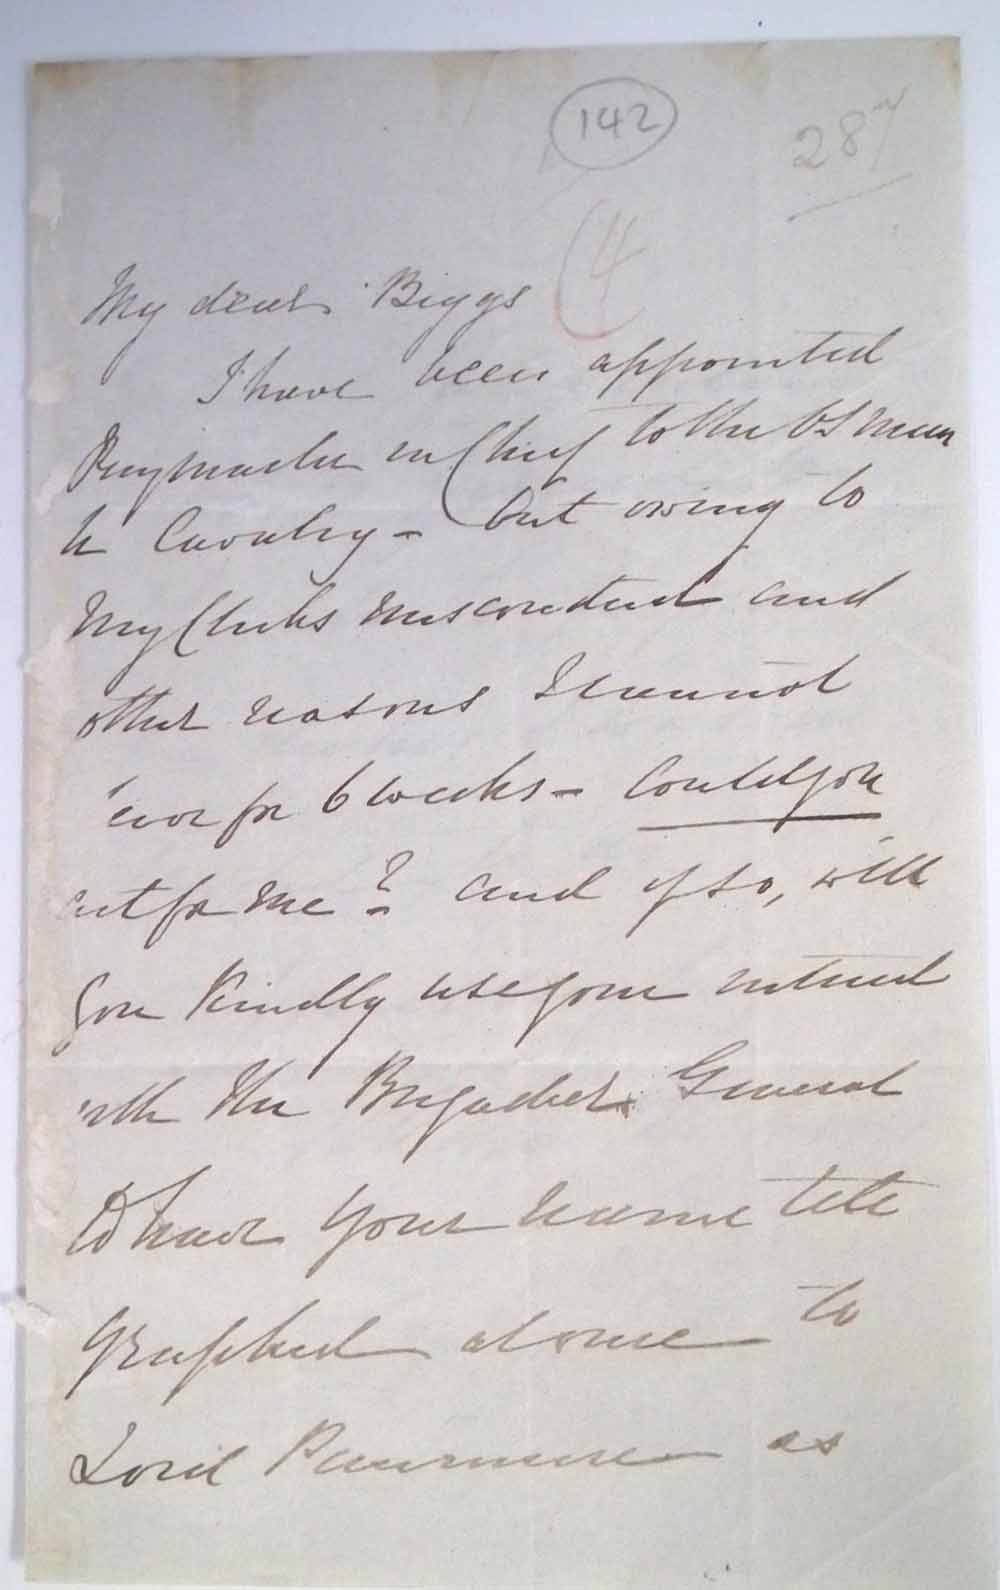 142
287
(4
My dear Biggs
I have been appointed
Paymaster in Chief to the Osman
li Cavalry - but owing to
My Clerks misconduct and
other reasons I cannot
for 6 weeks - Could you
act for me? and if so, will
you Kindly use your interest
with the Brigadier General
to have your name tele
graphed at once to
Lord Panmure as